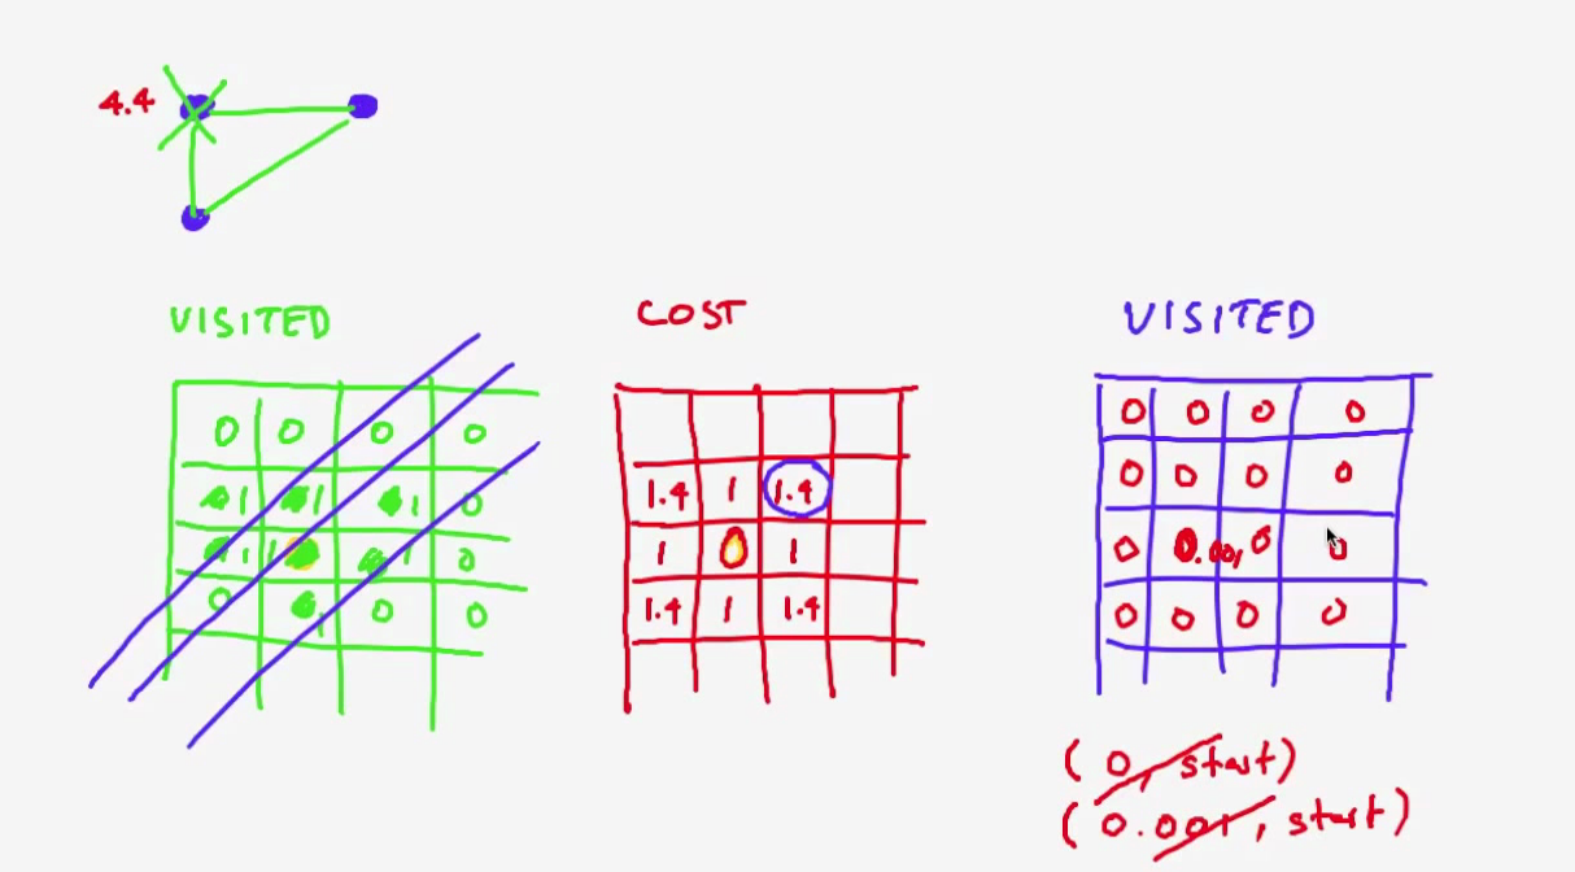 4.4
VISITED
0 0 0 0
1 1 1 0
1 1 1 0
0 1 0 0
COST
1.4 1 1.4
1 0 1
1.4 1 1.4
VISITED
0 0 0 0
0 0 0 0
0 0.001 0 0
0 0 0 0
(0, start)
(0.001, start)